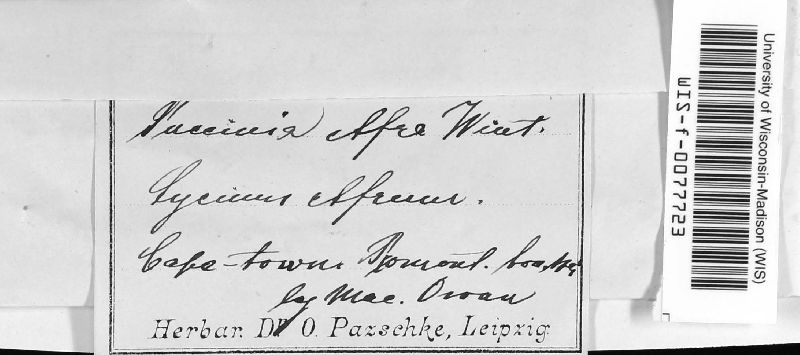 Puccinia Afra Wint.
Lycium Afrum.
Cape-town
leg Mac. Owan
Herbar. Dr O. Pazschke, Leipzig.
University of Wisconsin-Madison (WIS)
WIS-f-0077723